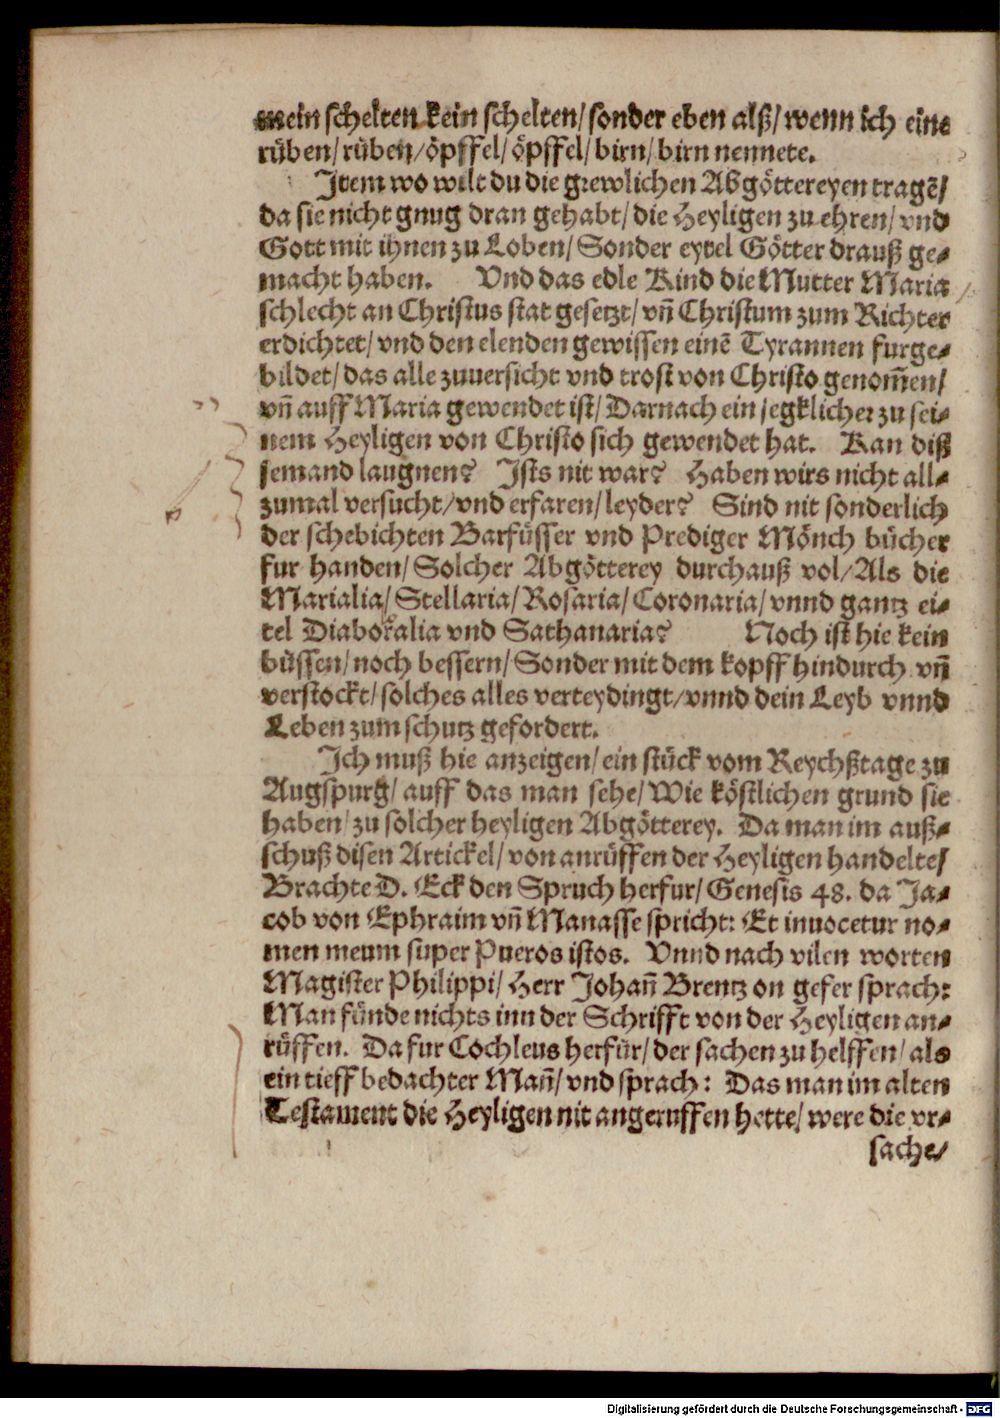 mein schelten kein schelten/ sonder eben alß/ wenn ich eine
rüben/ rüben/ öpffel/ öpffel/ birn/ birn nennete.
Item wo wilt du die grewlichen Abgöttereyen tragẽ/
da sie nicht gnug dran gehabt/ die Heyligen zu ehren/ vnd
Gott mit ihnen zu Loben/ Sonder eytel Götter drauß ge-
macht haben. Vnd das edle Kind die Mutter Maria
schlecht an Christus stat gesetzt/ vñ Christum zum Richter
erdichtet/ vnd den elenden gewissen einẽ Tyrannen furge-
bildet/ das alle zuuersicht vnd trost von Christo genom̃en/
vñ auff Maria gewendet ist/ Darnach ein jegklicher zu sei-
nem Heyligen von Christo sich gewendet hat. Kan diß
jemand laugnen? Ists nit war? Haben wirs nicht all-
zumal versucht/ vnd erfaren/ leyder? Sind nit sonderlich
der schebichten Barfüsser vnd Prediger Mönch bücher
fur handen/ Solcher Abgötterey durchauß vol/ Als die
Marialia/ Stellaria/ Rosaria/ Coronaria/ vnnd gantz ei-
tel Diaboralia vnd Sathanaria? Noch ist hie kein
büssen/ noch bessern/ Sonder mit dem kopff hindurch vñ
verstockt/ solches alles verteydingt/ vnnd dein Leyb vnnd
Leben zum schutz gefordert.
Ich muß hie anzeigen/ ein stück vom Reychßtage zu
Augspurg/ auff das man sehe/ Wie köstlichen grund sie
haben/ zu solcher heyligen Abgötterey. Da man im auß-
schuß disen Artickel/ von anrüffen der Heyligen handelte/
Brachte D. Eck den Spruch herfur/ Genesis 48. da Ja-
cob von Ephraim vñ Manasse spricht: Et inuocetur no-
men meum super Pueros istos. Vnnd nach vilen worten
Magister Philippi/ Herr Johañ Brentz on gefer sprach:
Man fünde nichts inn der Schrifft von der Heyligen an-
rüffen. Da fur Cochleus herfür/ der sachen zu helffen/ als
ein tieff bedachter Mañ/ vnd sprach: Das man im alten
Testament die Heyligen nit angeruffen hette/ were die vr-
sache/
Digitalisierung gefördert durch die Deutsche Forschungsgemeinschaft - DFG